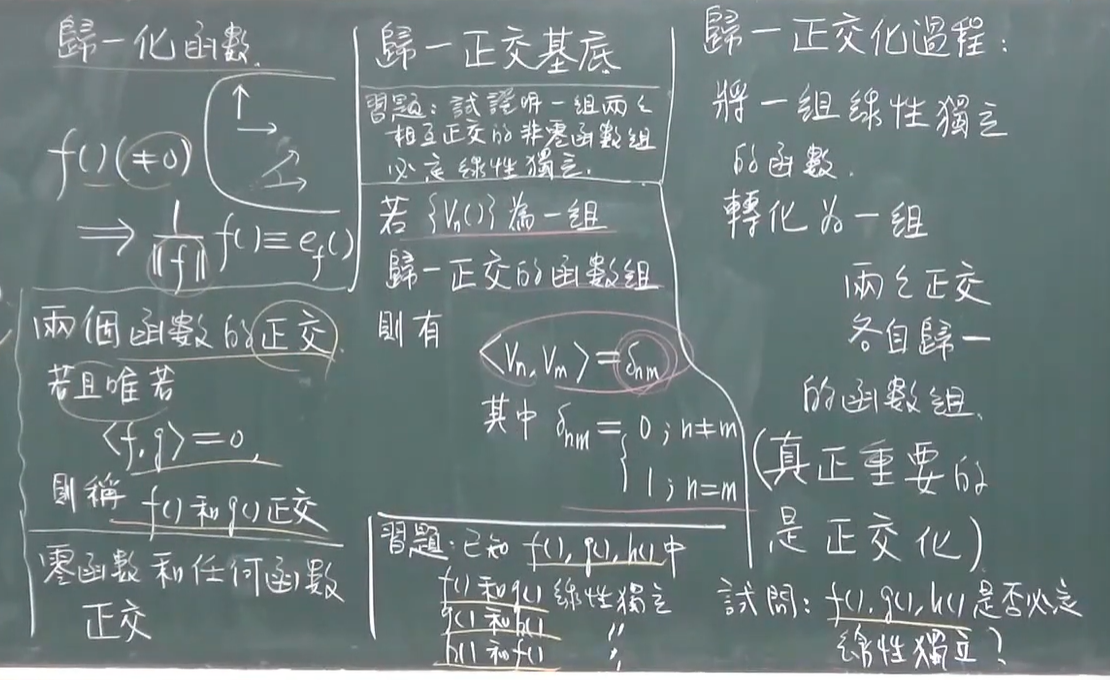 歸一化函數.
f()(≠0)
⇒ 1/‖f‖ f()≡e_f()
兩個函數的正交
若且唯若
<f,g>=0,
則稱 f()和g()正交
零函數和任何函數
正交
歸一正交基底
習題:試證明一組兩兩
相互正交的非零函數組
必定線性獨立.
若{Vn()}為一組
歸一正交的函數組
則有
<Vn,Vm>=δnm
其中 δnm= { 0;n≠m
1;n=m
習題:已知 f(),g(),h()中
f()和g()線性獨立
g()和h() 〃
h()和f() 〃
試問: f(),g(),h()是否必定
線性獨立?
歸一正交化過程:
將一組線性獨立
的函數.
轉化為一組
兩兩正交
各自歸一
的函數組.
(真正重要的
是正交化)